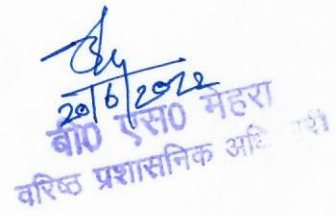 20/6/2022
बी0 एस0 मेहरा
वरिष्ठ प्रशासनिक